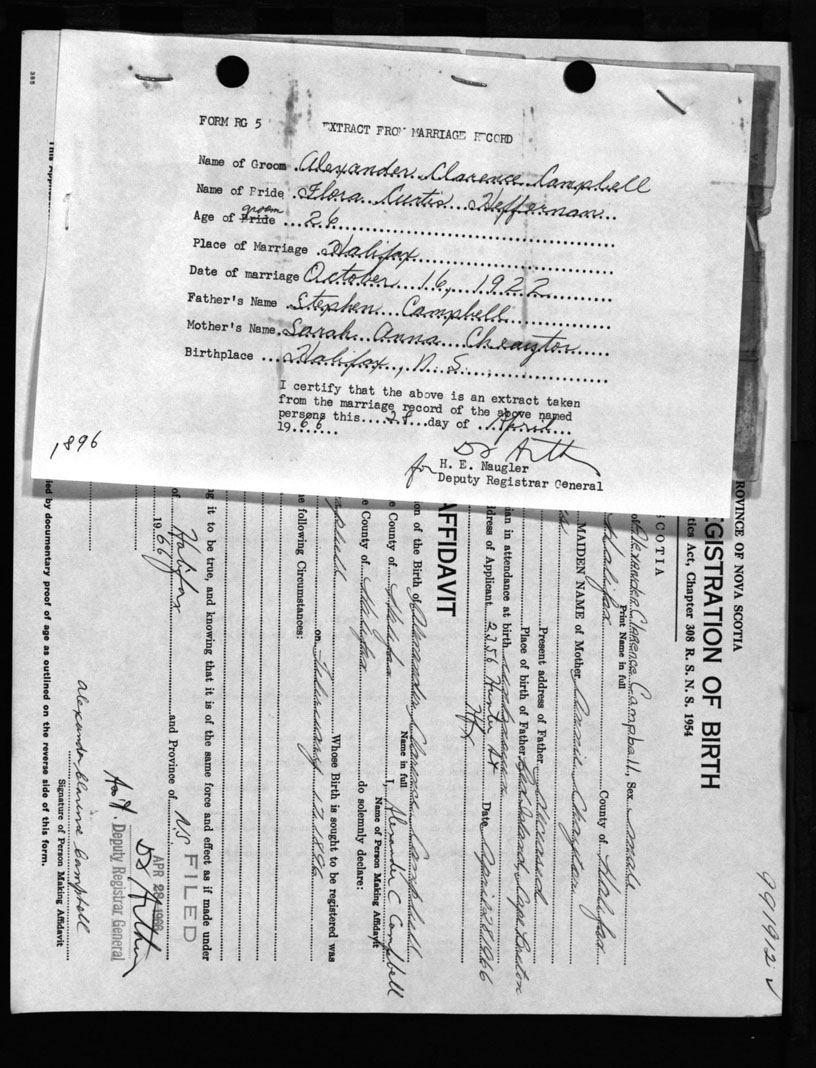 FORM RG 5 EXTRACT FROM MARRIAGE RECORD
Name of Groom Alexander Clarence Campbell
Name of Bride Flora Curtis Heffernan
groom
Age of Bride 26
Place of Marriage Halifax
Date of marriage October 16, 1922
Father's Name Stephen Campbell
Mother's Name Sarah Anna
Birthplace Halifax, N.S.
I certify that the above is an extract taken
from the marriage record of the above named
persons this 28 day of April
1966
for H. E. Naugler
Deputy Registrar General
1896
385
99192
PROVINCE OF NOVA SCOTIA
REGISTRATION OF BIRTH
tics Act, Chapter 308 R. S. N. S. 1954
SCOTIA
Alexander Clarence Campbell, Sex male
Print Name in full
Halifax County of Halifax
MAIDEN NAME of Mother
Present address of Father Deceased
Place of birth of Father Cape Breton
ian in attendance at birth
dress of Applicant 2356 Hunter St Date April 28 1966
Hfx
AFFIDAVIT
on of the Birth of Alexander Clarence Campbell
Name in full
e County of Halifax I, Alexander C Campbell
Name of Person Making Affidavit
e County of Halifax do solemnly declare:
Campbell Whose Birth is sought to be registered was
on February 17 1896
he following Circumstances:
ng it to be true, and knowing that it is of the same force and effect as if made under
of Halifax and Province of N.S.
1966
FILED
APR 28 1966
Deputy Registrar General
Alexander Clarence Campbell
Signature of Person Making Affidavit
ied by documentary proof of age as outlined on the reverse side of this form.